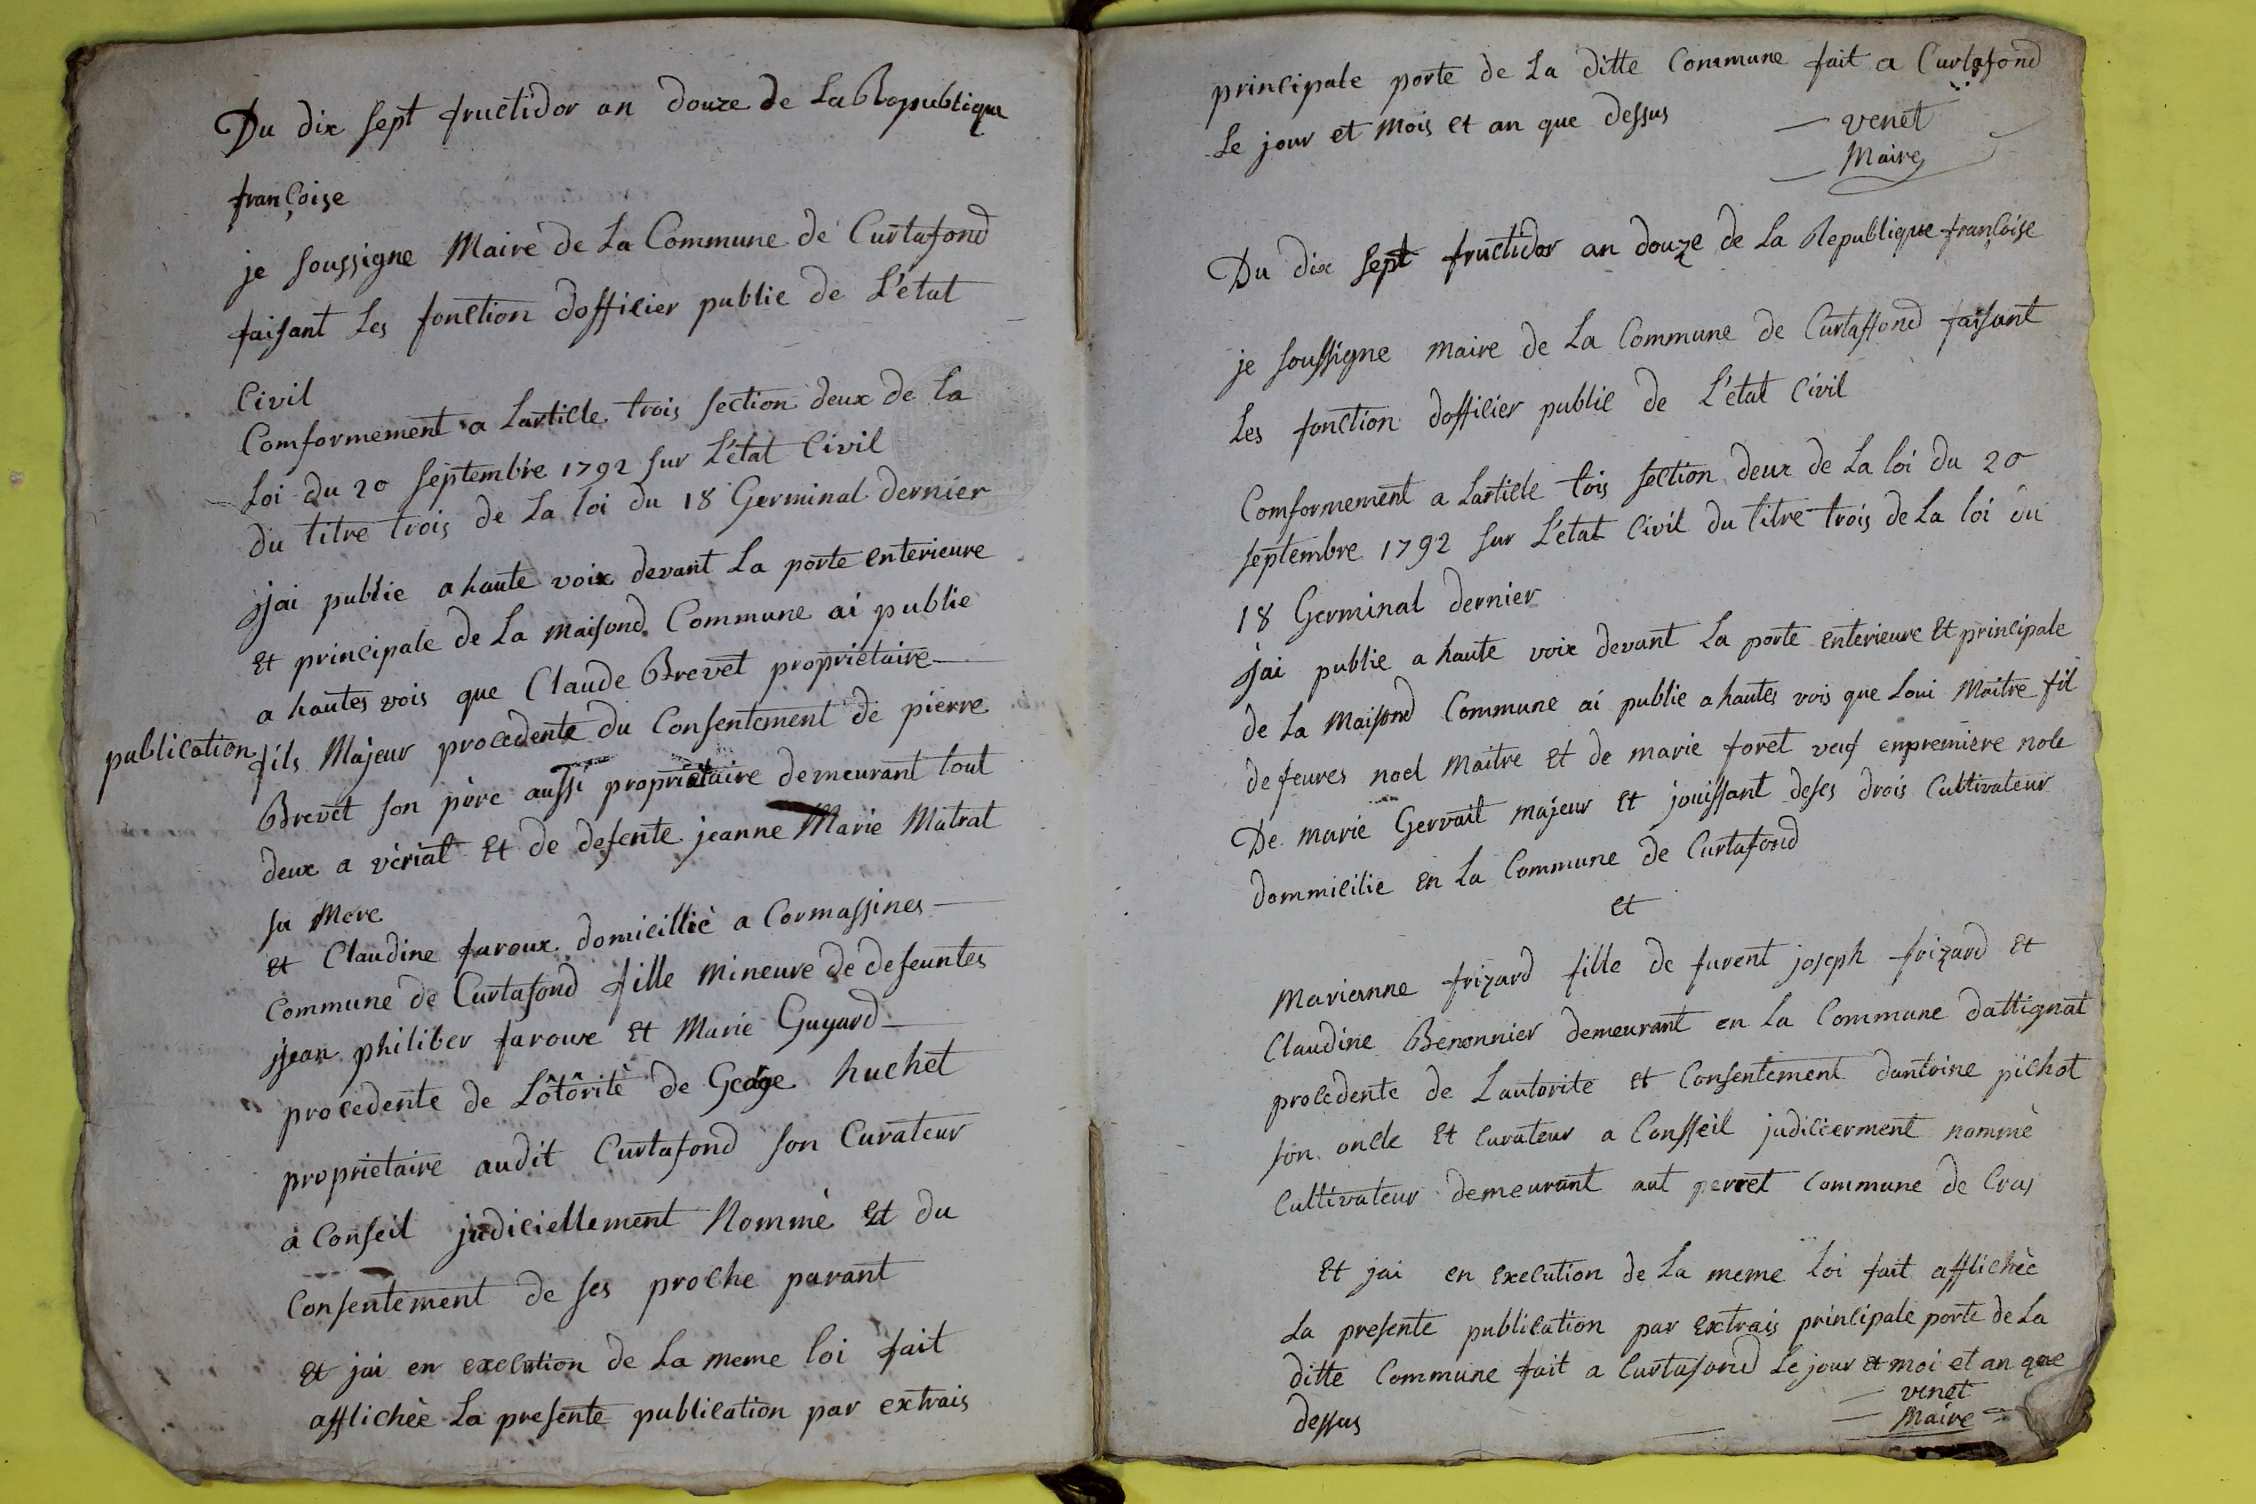 Du dix sept fructidor an douze de La Republique
françoise
je soussigne Maire de La Commune de Curtafond
faisant Les fonction dofficier public de L'état
Civil
Comformement a Lartille trois section deux de La
Loi du 20 septembre 1792 sur L'état Civil
du titre trois de La loi du 18 Germinal dernier
jai publie a haute voix devant La porte enterieure
et principale de La maisond Commune ai publie
a hautes vois que Claude Brevet propriétaire
publication
fils Majeur procedente du Consentement de pierre
Brevet son père aussi propriétaire demeurant tout
deux a vèriat et de defente jeanne Marie Matrat
sa Mere
et Claudine faroux domicilliè a Cormassines
Commune de Curtafond fille mineure de defeuntes
jean philiber faroux et Marie Guyard
procedente de Lôtôritè de George huchet
proprietaire audit Curtafond son Curateur
a Conseil judiciellement Nommè et du
Consentement de ses proche parant
et jai en execution de La meme loi fait
afflichèe La presente publication par extrais
principale porte de La ditte Commune fait a Curtafond
Le jour et mois et an que dessus
venet
Maire
Du dix sept fructidor an douze de La Republique françoise
je soussigne maire de La Commune de Curtaffond faisant
Les fonction dofficier public de L'état Civil
Comformement a Lartille tois section deux de La loi du 20
septembre 1792 sur L'état Civil du titre trois de La loi du
18 Germinal dernier
jai publie a haute voix devant La porte enterieure et principale
de La maisond Commune ai publie a hautes vois que Loui Maitre fil
de feures noel maitre et de marie foret veuf enpremiere nole
De marie Gervait majeur et jouissant deses drois Cultivateur
dommicilie en La Commune de Curtafond
et
Marianne frizard fille de furent joseph frizard et
Claudine Benonnier demeurant en La Commune dattignat
procedente de Lautorite et Consentement dantoine pichot
son oncle et curateur a Consseil judicierment nommè
Cultivateur demeurant aut perret Commune de Cras
et jai en execution de La meme Loi fait afflichèe
La presente publication par extrais principale porte de La
ditte Commune fait a Curtafond Le jour et moi et an que
dessus
venet
Maire